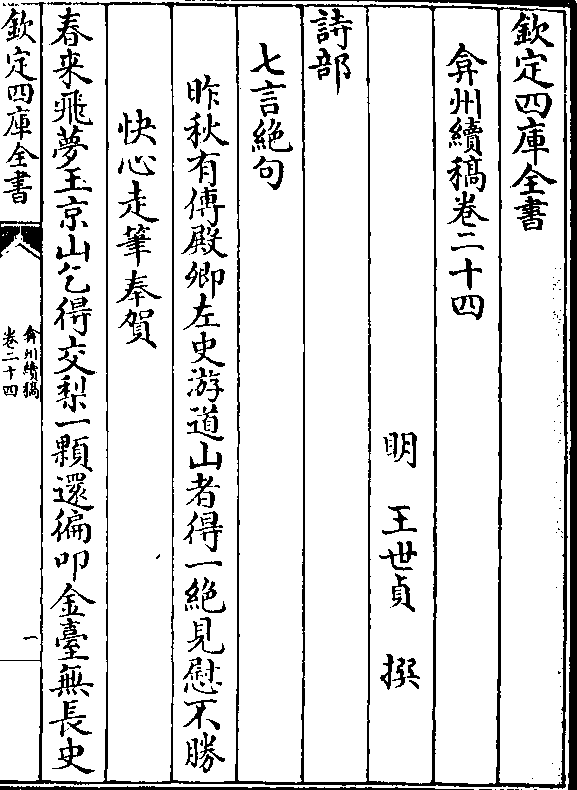 欽定四庫全書
弇州續稿卷二十四
明　王世貞　撰
詩部
七言絶句
昨秋有傳殿卿左史游道山者得一絶見慰不勝
快心走筆奉賀
春来飛夢玉京山乞得交梨一顆還徧叩金臺無長史
欽定四庫全書
弇州續稿
卷二十四
一